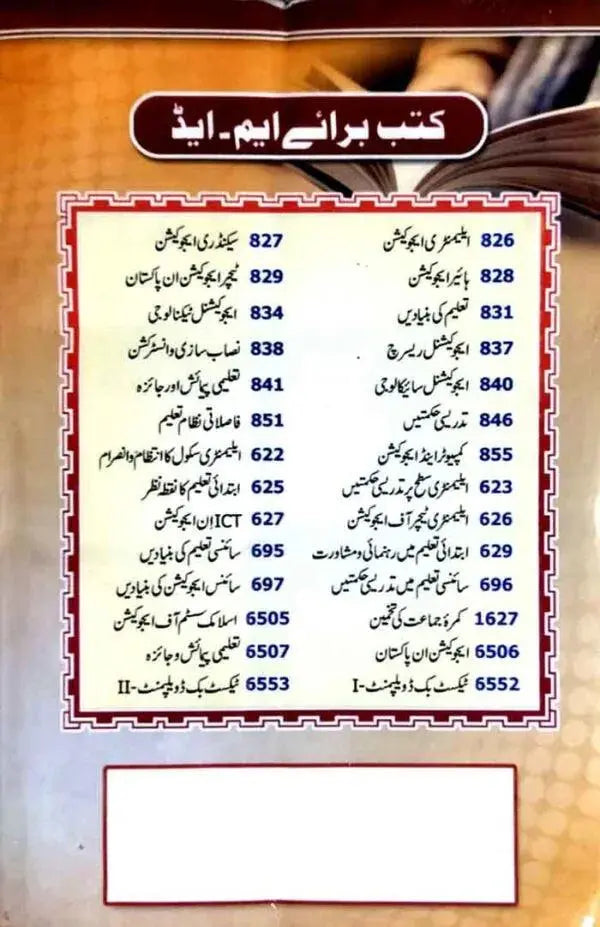 کتب برائے ایم۔ایڈ
826 ایلیمنٹری ایجوکیشن 827 سیکنڈری ایجوکیشن
828 ہائیر ایجوکیشن 829 ٹیچر ایجوکیشن ان پاکستان
831 تعلیم کی بنیادیں 834 ایجوکیشنل ٹیکنالوجی
837 ایجوکیشنل ریسرچ 838 نصاب سازی و انسٹرکشن
840 ایجوکیشنل سائیکالوجی 841 تعلیمی پیمائش اور جائزہ
846 تدریسی حکمتیں 851 فاصلاتی نظام تعلیم
855 کمپیوٹر اینڈ ایجوکیشن 622 ایلیمنٹری سکول کا انتظام و انصرام
623 ایلیمنٹری سطح پر تدریسی حکمتیں 625 ابتدائی تعلیم کا نقطہ نظر
626 ایلیمنٹری ٹیچر آف ایجوکیشن 627 ICT اِن ایجوکیشن
629 ابتدائی تعلیم میں رہنمائی و مشاورت 695 سائنسی تعلیم کی بنیادیں
696 سائنسی تعلیم میں تدریسی حکمتیں 697 سائنس ایجوکیشن کی بنیادیں
1627 کمرۂ جماعت کی تخمین 6505 اسلامک سسٹم آف ایجوکیشن
6506 ایجوکیشن ان پاکستان 6507 تعلیمی پیمائش و جائزہ
6552 ٹیکسٹ بک ڈویلپمنٹ-I 6553 ٹیکسٹ بک ڈویلپمنٹ-II